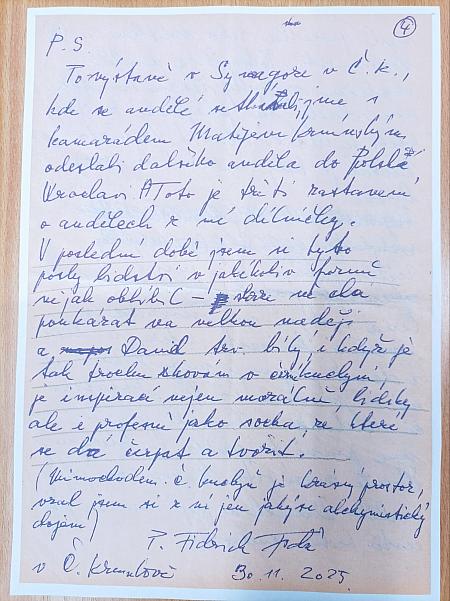 4
P. S.
Tovýstavě v Synagoze v Č. k.,
kde se andělé
kamarádem Matějem
odeslali dalšího anděla do Polské
Wroclavi A Toto je třetí zastavení
o andělech z mé dílničky.
V poslední době jsem si tyto
posly lidství v jakékoliv formě
nějak oblíbil – se dá
poukázat na velkou naději
a David bílý, i když je
tak trochu schován v
je inspirací nejen morálně, lidsky
ale i profesně jako socha, ze které
se dá čerpat a tvořit.
(Mimochodem. č. kuchyň je krásný prostor,
vzal jsem si z ní jen jakýsi alchymistický
dojem)
P. Fidrich
v Č. Krumlově 30. 11. 2025.